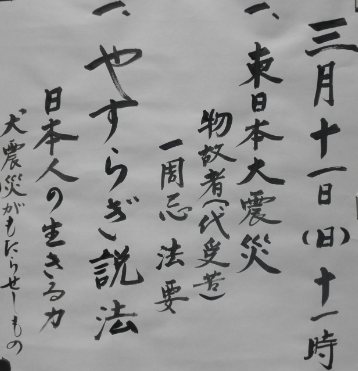 三月十一日(日)十一時
一、東日本大震災
物故者(代受苦)
一周忌法要
一、やすらぎ説法
日本人の生きる力
大震災がもたらせしもの